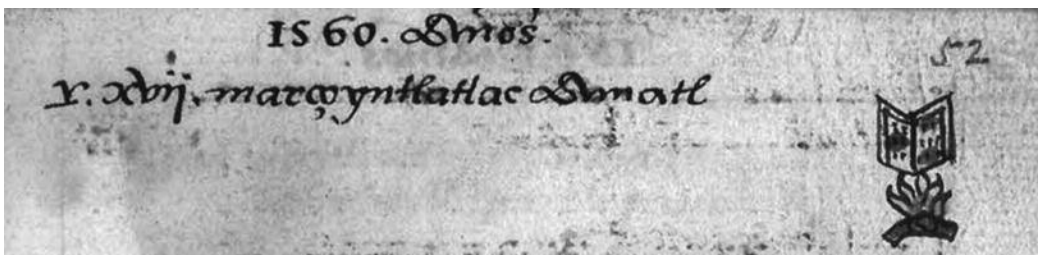 1560. Años.
52
Y. xvij. março yntlatlac Amatl